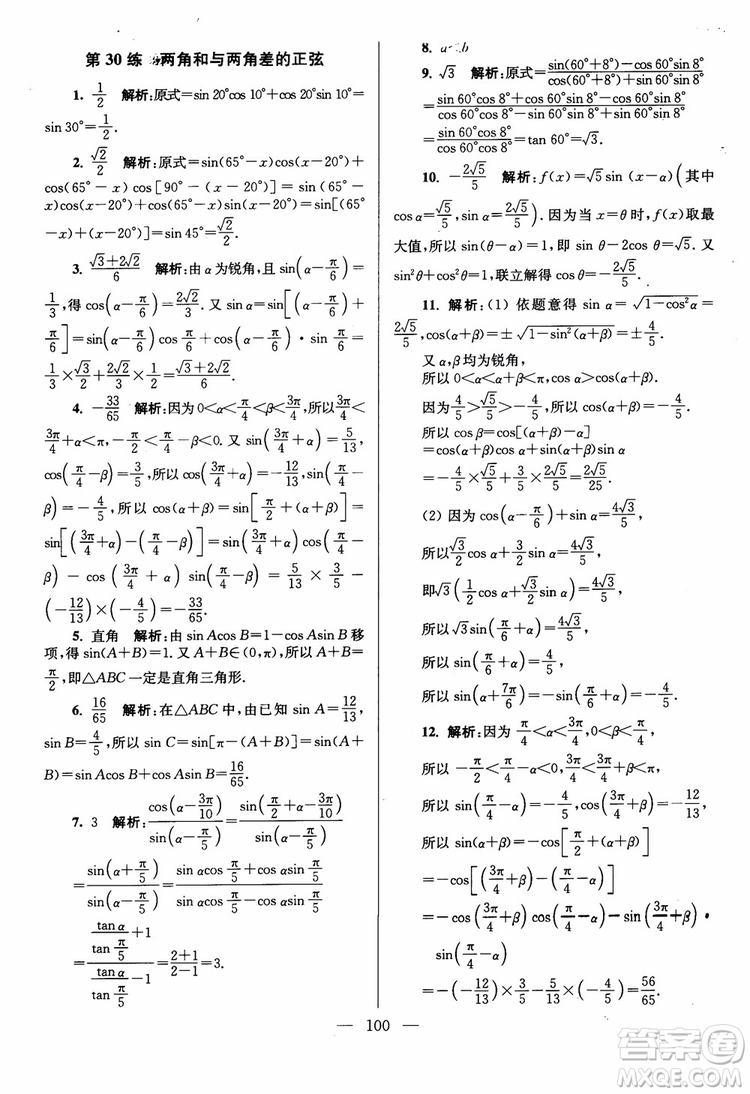 第 30 练 两角和与两角差的正弦
1. 1/2 解析:原式=sin 20°cos 10°+cos 20°sin 10°=
sin 30°=1/2.
2. √2/2 解析:原式=sin(65°-x)cos(x-20°)+
cos(65°-x)cos[90°-(x-20°)]=sin[(65°
-x)+(x-20°)]=sin45°=√2/2.
3. (√3+2√2)/6 解析:由α为锐角,且sin(α-π/6)=
1/3,得cos(α-π/6)=2√2/3.又sin α=sin[(α-
π/6)+π/6]=sin(α-π/6)cos π/6+cos(α-π/6)·sin π/6=
1/3×√3/2+2√2/3×1/2=(√3+2√2)/6.
4. -33/65 解析:因为0<α<π/4<β<3π/4,所以π<
3π/4+α<π,-π/2<π/4-β<0.又sin(3π/4+α)=5/13,
cos(π/4-β)=3/5,所以cos(3π/4+α)=-12/13,sin(π/4-
β)=-4/5,所以cos(α+β)=sin[π/2+(α+β)]=
sin[(3π/4+α)-(π/4-β)]=sin(3π/4+α)cos(π/4-
β)-cos(3π/4+α)sin(π/4-β)=5/13×3/5-
(-12/13)×(-4/5)=-33/65.
5. 直角 解析:由sin Acos B=1-cos Asin B移
项,得sin(A+B)=1.又A+B∈(0,π),所以A+B=
π/2,即△ABC一定是直角三角形.
6. 16/65 解析:在△ABC中,由已知sin A=12/13,
sin B=4/5,所以sin C=sin[π-(A+B)]=sin(A+
B)=sin Acos B+cos Asin B=16/65.
7. 3 解析:cos(α-3π/10)/sin(α-π/5)=sin(π/2+α-3π/10)/sin(α-π/5)=
sin(α+π/5)/sin(α-π/5)=(sin αcos π/5+cos αsin π/5)/(sin αcos π/5-cos αsin π/5)
=(tan α/tan π/5+1)/(tan α/tan π/5-1)=(2+1)/(2-1)=3.
8. a<b
9. √3 解析:原式=(sin(60°+8°)-cos 60°sin 8°)/(cos(60°+8°)+sin 60°sin 8°)
=(sin 60°cos 8°+cos 60°sin 8°-cos 60°sin 8°)/(cos 60°cos 8°-sin 60°sin 8°+sin 60°sin 8°)
=sin 60°cos 8°/cos 60°cos 8°=tan 60°=√3.
10. -2√5/5 解析:f(x)=√5sin(x-α)(其中
cos α=√5/5,sin α=2√5/5).因为当x=θ时,f(x)取最
大值,所以sin(θ-α)=1,即sin θ-2cos θ=√5.又
sin²θ+cos²θ=1,联立解得cos θ=-2√5/5.
11. 解析:(1) 依题意得sin α=√(1-cos²α)=
2√5/5,cos(α+β)=±√(1-sin²(α+β))=±4/5.
又α,β均为锐角,
所以0<α<α+β<π,cos α>cos(α+β).
因为4/5>√5/5>-4/5,所以cos(α+β)=-4/5.
所以cos β=cos[(α+β)-α]
=cos(α+β)cos α+sin(α+β)sin α
=-4/5×√5/5+3/5×2√5/5=2√5/25.
(2) 因为cos(α-π/6)+sin α=4√3/5,
所以√3/2cos α+3/2sin α=4√3/5,
即√3(1/2cos α+√3/2sin α)=4√3/5,
所以√3sin(π/6+α)=4√3/5,
所以sin(π/6+α)=4/5,
所以sin(α+7π/6)=-sin(π/6+α)=-4/5.
12. 解析:因为π/4<α<3π/4,0<β<π/4,
所以-π/2<π/4-α<0,3π/4<3π/4+β<π,
所以sin(π/4-α)=-4/5,cos(3π/4+β)=-12/13,
所以sin(α+β)=-cos[π/2+(α+β)]
=-cos[(3π/4+β)-(π/4-α)]
=-cos(3π/4+β)cos(π/4-α)-sin(3π/4+β)·
sin(π/4-α)
=-(-12/13)×3/5-5/13×(-4/5)=56/65.
— 100 —
答案圈
MXQE.COM